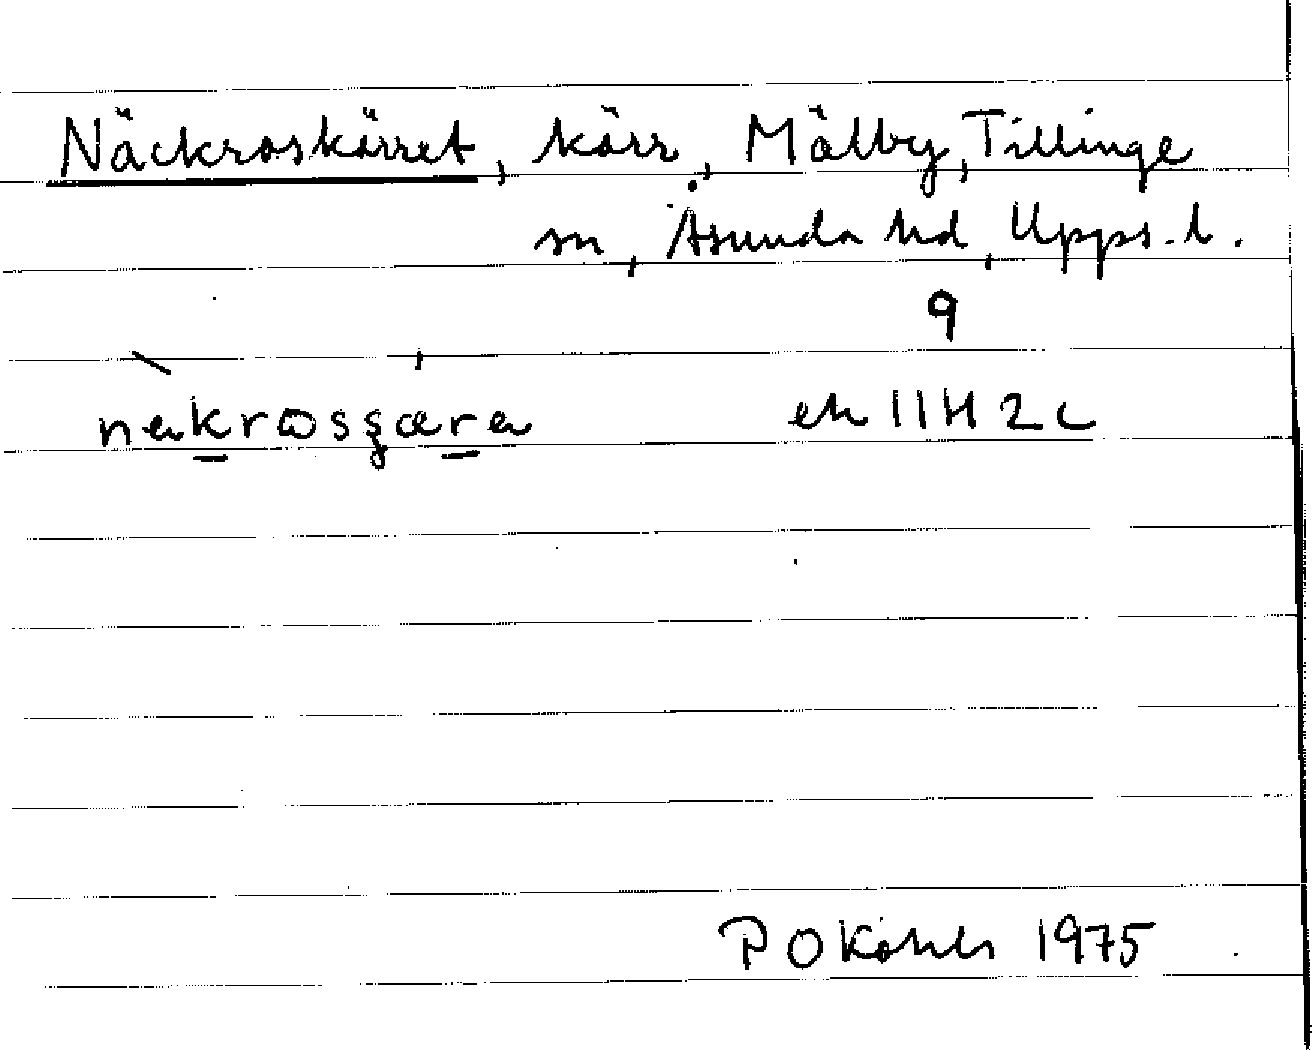 Näckroskärret, kärr, Mälby, Tillinge
sn, Åsunda hd, Upps. l.
9
ek 11H 2c
P O 1975